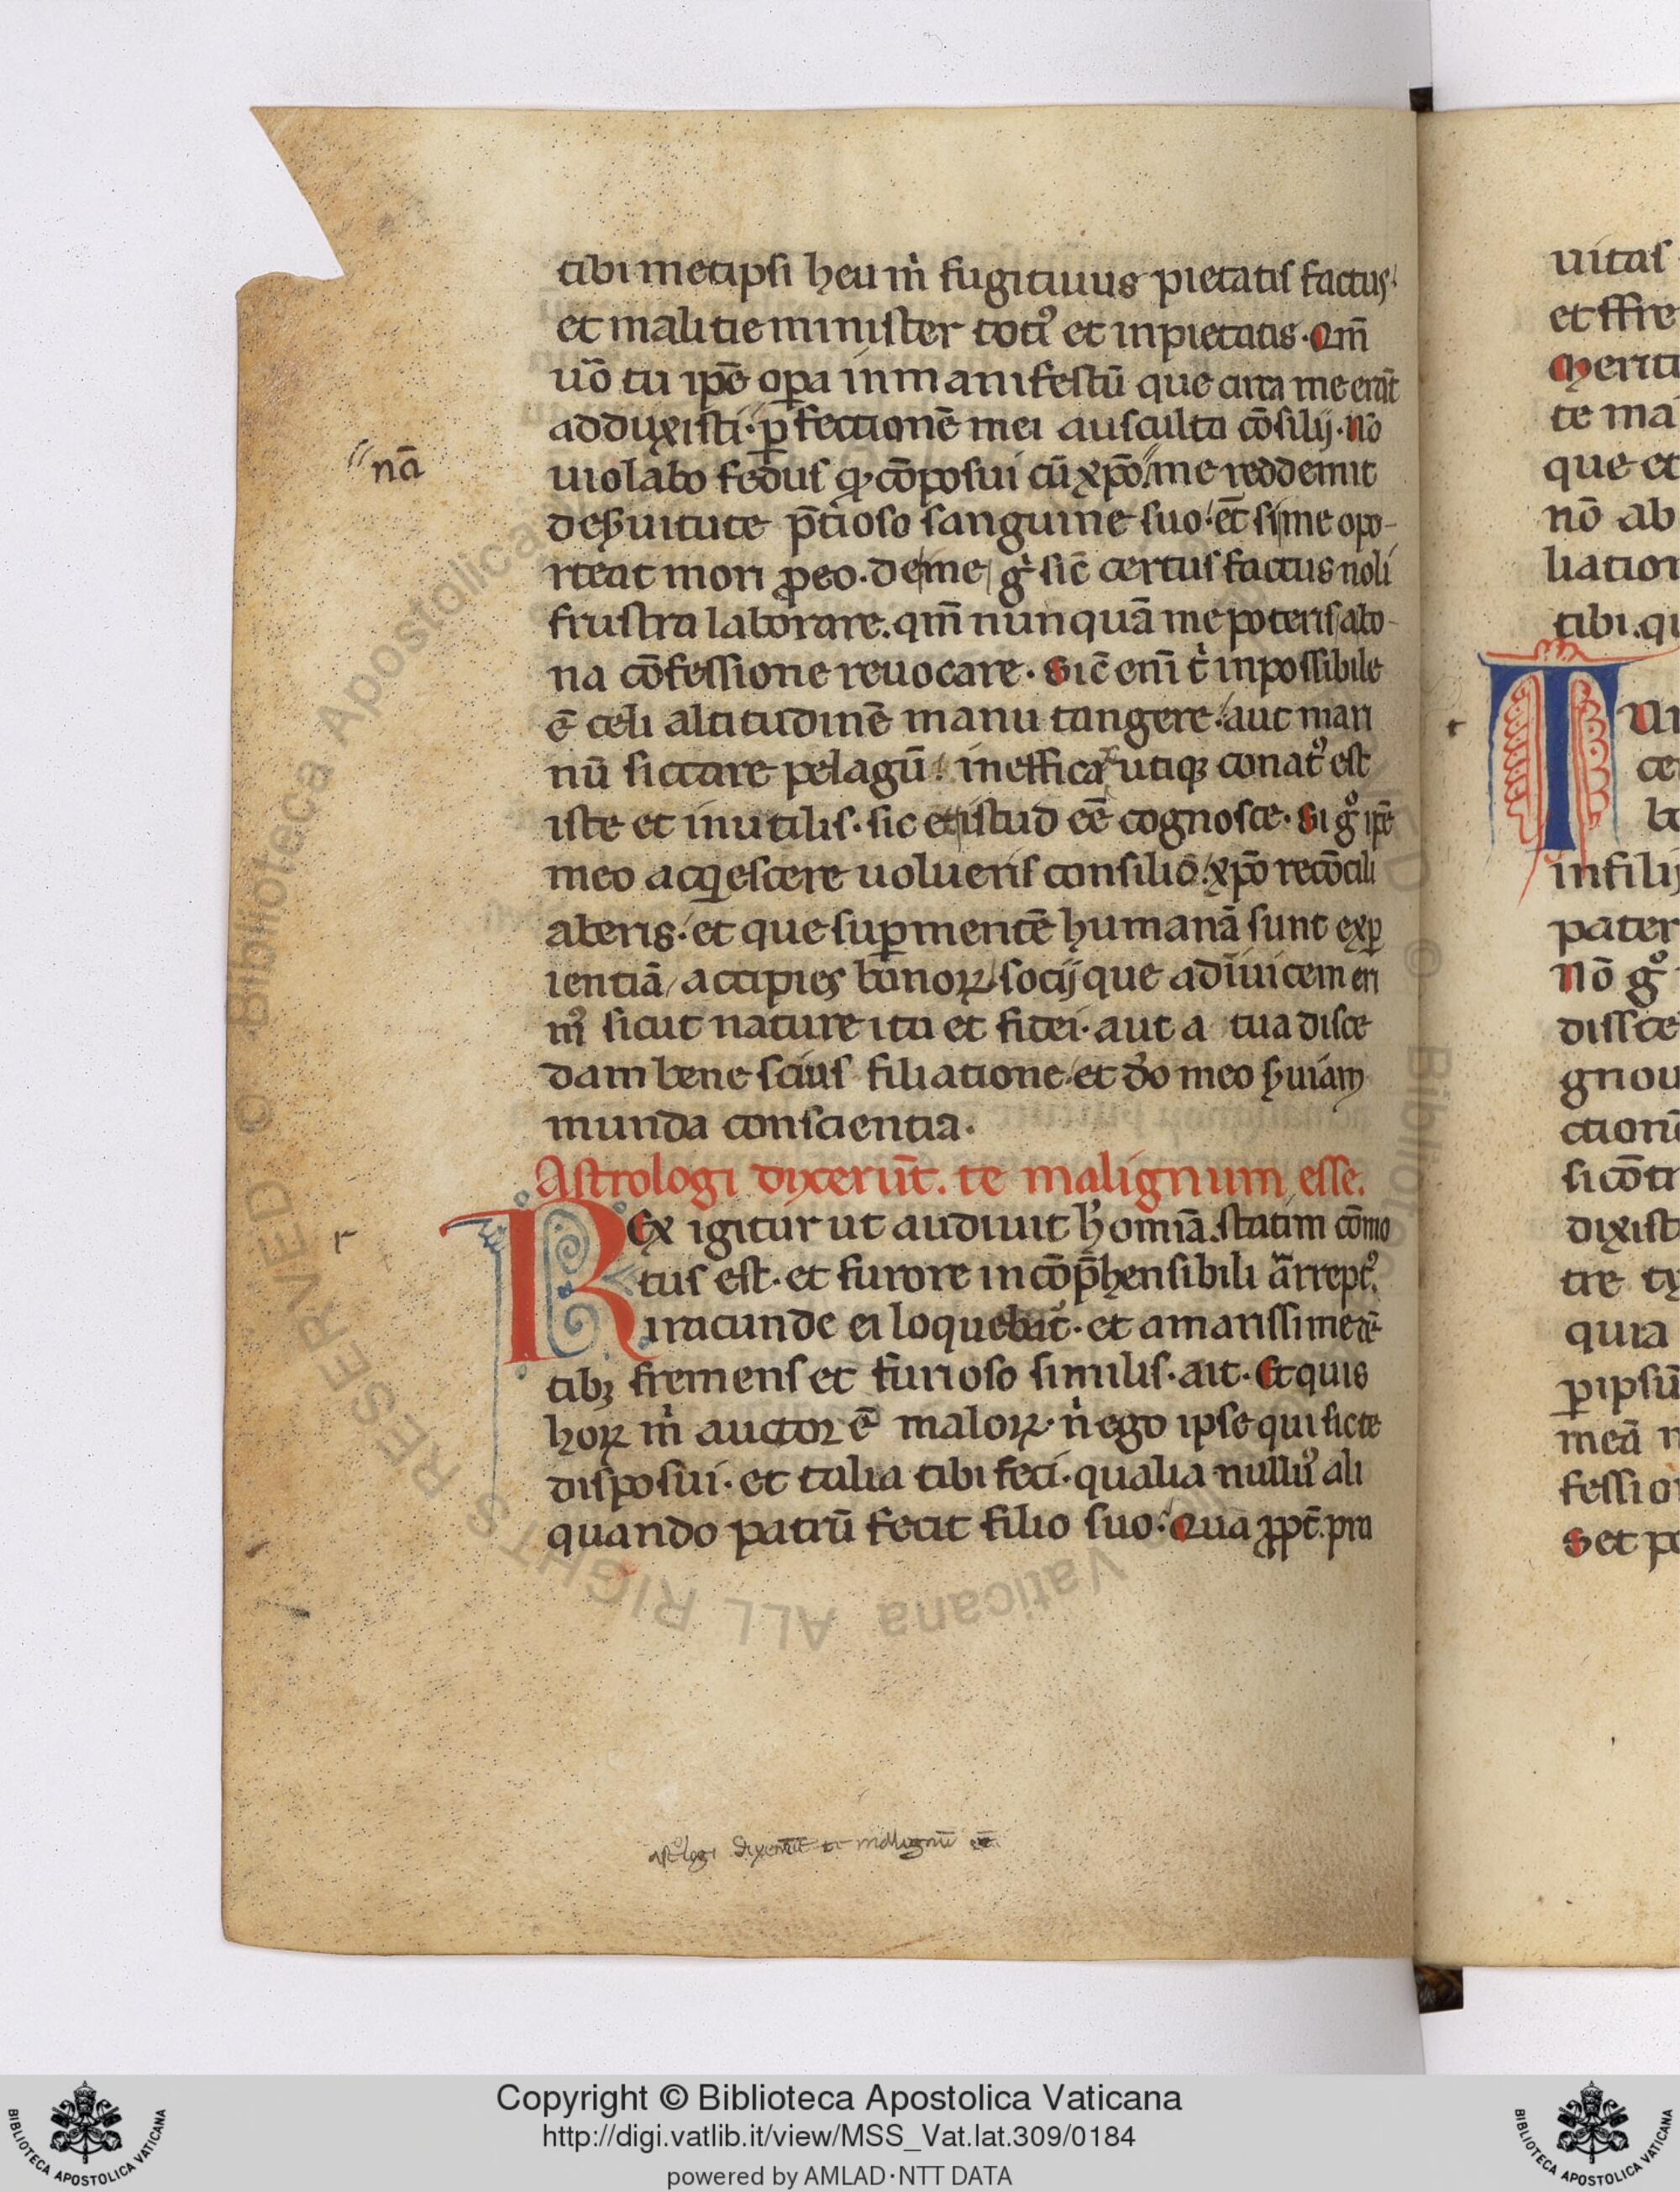 tibi metipsi heu m̊ fugitiuus pietatis factus
et malitie minister toti᷒ et inpietatis. Qm̄
uo᷃ tu ip̄e oꝑa in manifestū que circa me erāt
adduxisti. ꝑfectionē mei ausculta cōsilij. Nō
nā
uiolabo fedus qͥ cōposui cū xp̄o me reddemit
deẜuitute p̄tioso sanguine suo. et̄ si me opo-
rteat mori ꝓ eo. de me gͥ sic̄ certus factus noli
frustra laborare. qm̄ nunquā me poteris a bo-
na cōfessione reuocare. Sic̄ eni᷃ tͥ inpossibile
ē celi altitudinē manu tangere. aut mari
nū siccare pelagū. inefficax utiqꝫ conat᷒ est
iste et inutilis. sic et istud eē cognosce. Si gͦ ip̄e
meo acq̇escere uolueris consilio. xp̄o recōcili
aberis. et que suꝑ mentē humanā sunt exꝑ
ientiā accipies bonoꝝ socijque adīuicem eri
m᷒ sicut nature ita et fidei. aut a tua disce
dam bene scius filiatione et dō meo ẜuiam
munda conscientia.
Astrologi dixerūt. te malignum esse.
Rex igitur ut audiuit h̄ omīa. statim cōmo
tus est. et furore in cōp̄hensibili arrept᷒
iracunde ei loquebat᷒. et amarissime dē-
tibꝫ fremens et furioso similis. ait. Et quis
hoꝝ m̊ auctor ē maloꝝ. n̊ ego ipse qui sicte
disposui. et talia tibi feci. qualia nullu᷒ ali
quando patrū fecit filio suo. Qua ꝓpt̄. pra
ast᷒logi dixerūt te mallignū eē.
uitas
et ffre
te ma
que et
nō ab
liation
tibi. qu
in filij
pater
Nō gͦ
dissce
gnou
ctionē
si cōtr
dixist
tre ty
quia
ꝑ ipsū
meā n
fessio
Set po
Copyright © Biblioteca Apostolica Vaticana
http://digi.vatlib.it/view/MSS_Vat.lat.309/0184
powered by AMLAD·NTT DATA
BIBLIOTECA APOSTOLICA VATICANA
BIBLIOTECA APOSTOLICA VATICANA